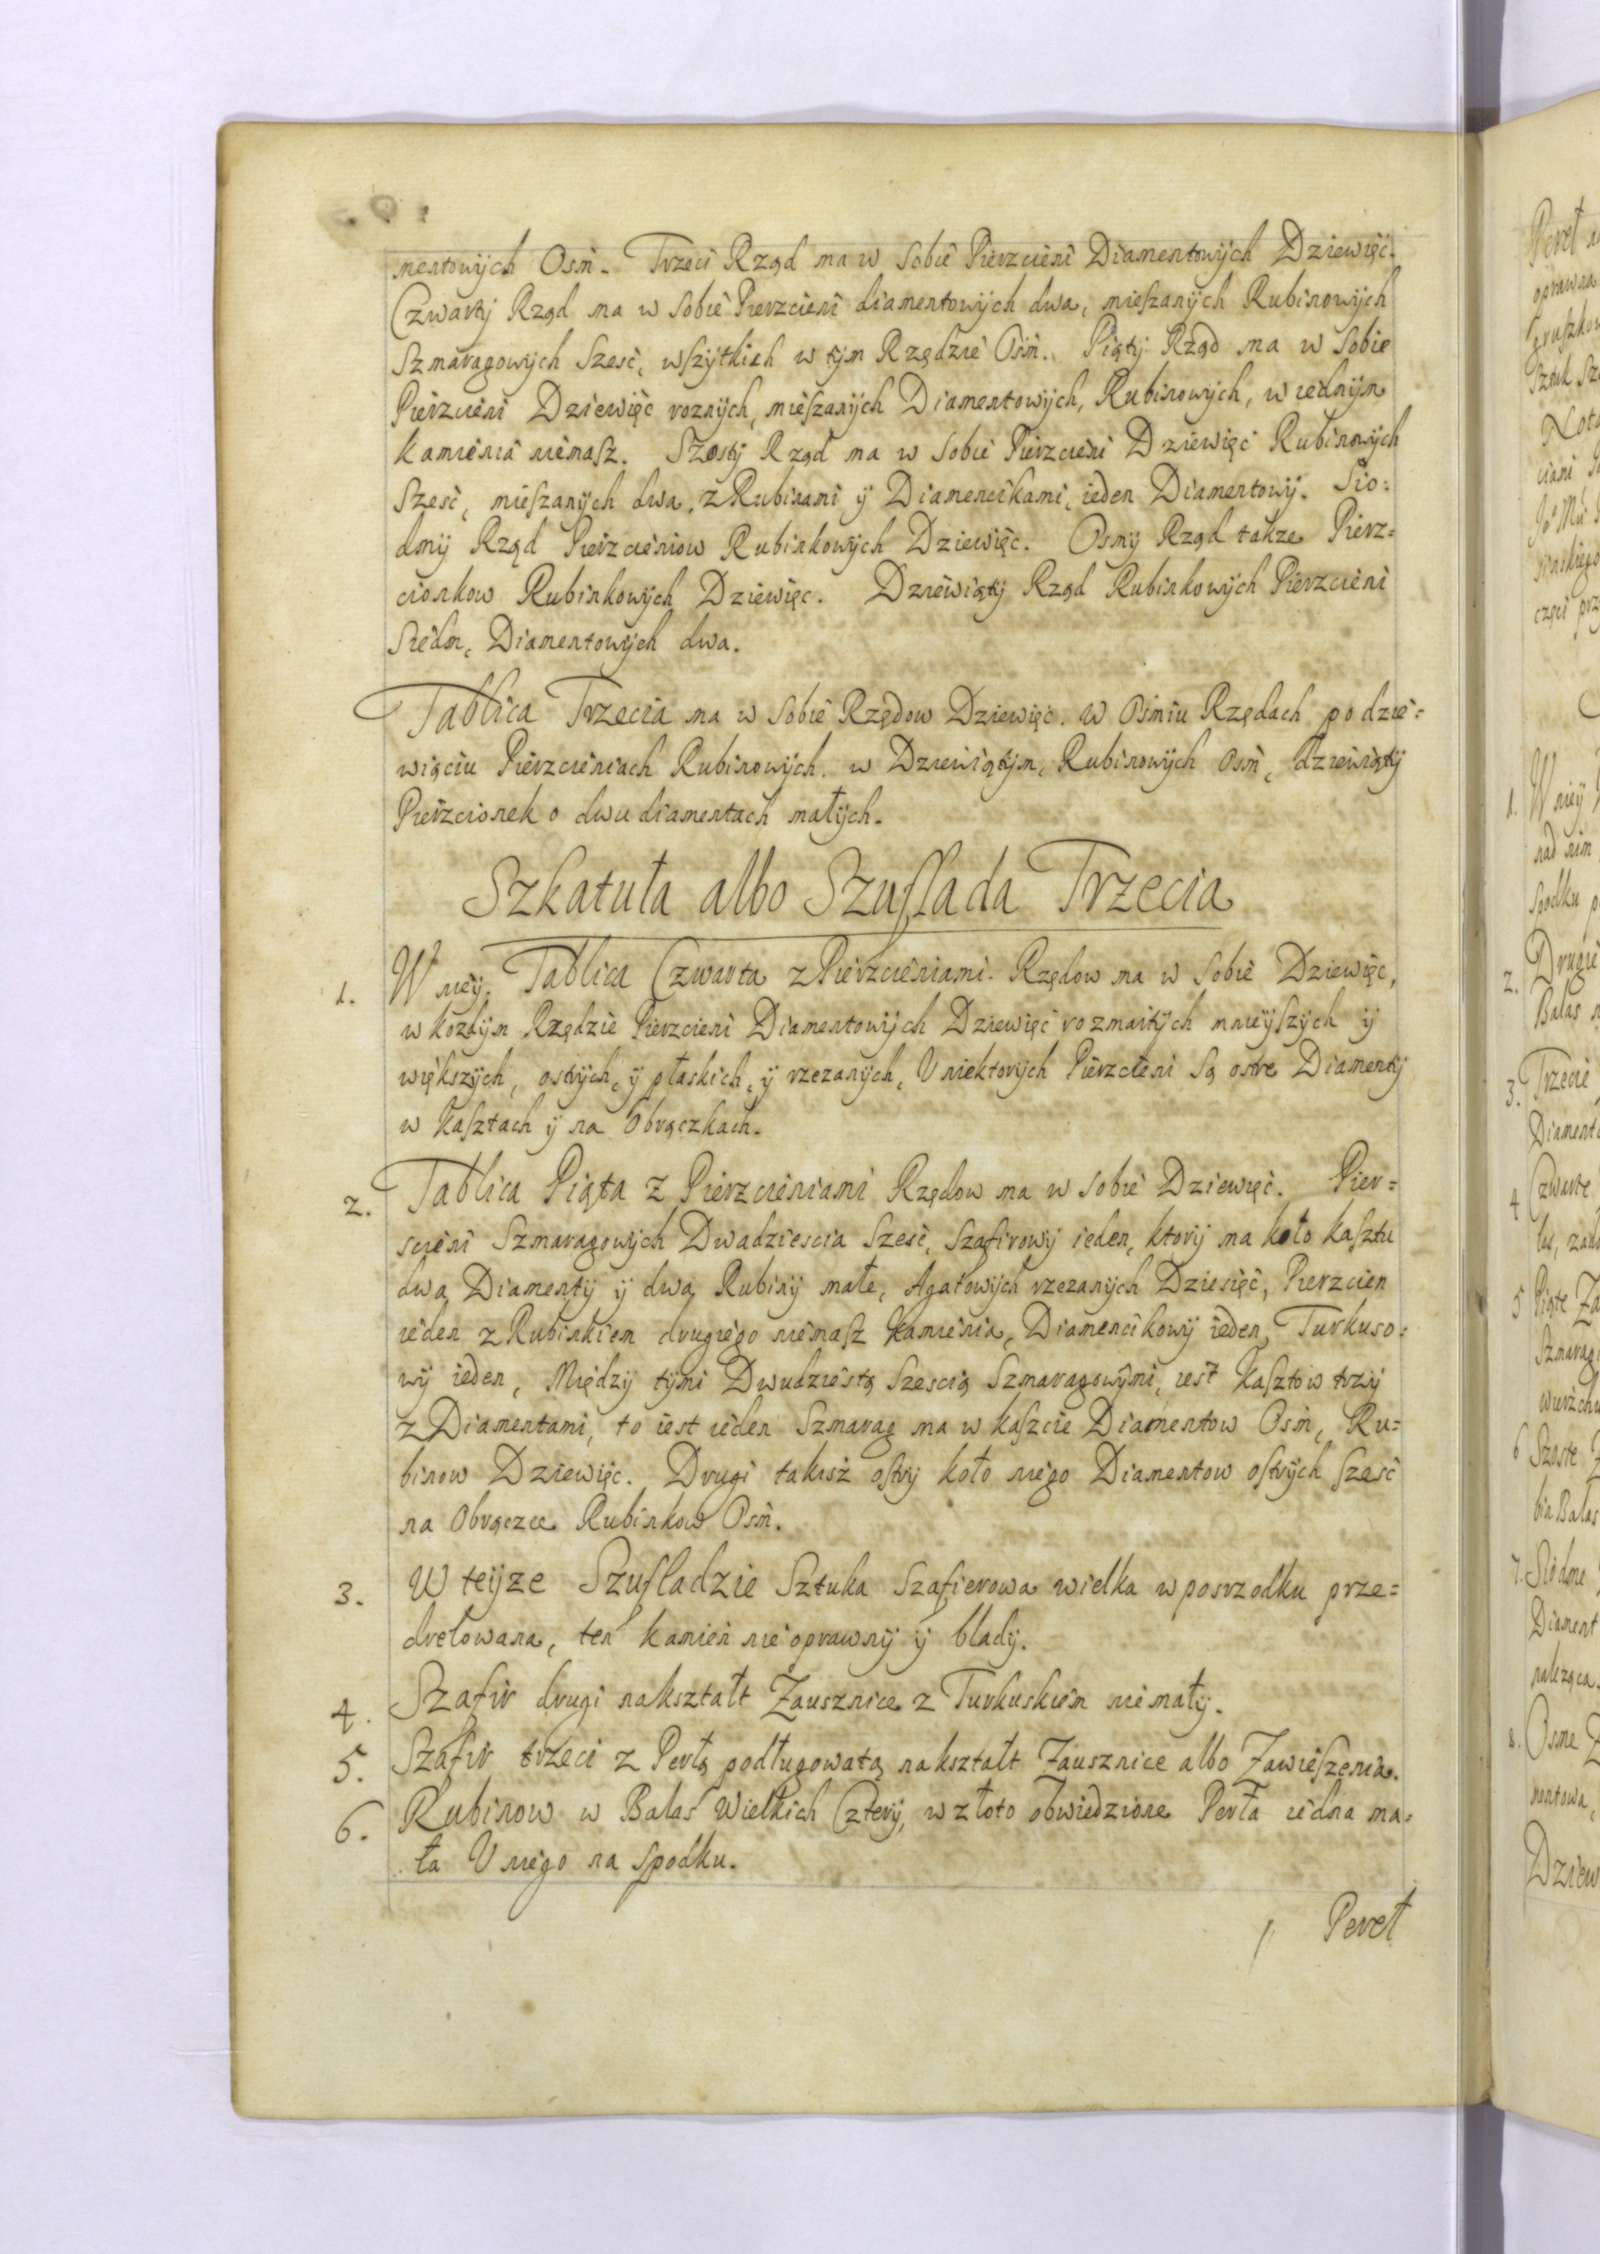 mentowych Osm. Trzeci Rząd ma w sobie Pierzcieni Diamentowych Dziewięc.
Czwarty Rząd ma w sobie Pierzcieni diamentowych dwa, mieszanych Rubinowych
Szmaragowych Szesc, wszytkich w tym Rzędzie Osm. Piąty Rząd ma w sobie
Pierzcieni Dziewięc roznych, mieszanych Diamentowych, Rubinowych, w iednym
kamienia niemasz. Szosty Rząd ma w sobie Pierzcieni Dziewięc Rubinowych
Szesc, mieszanych dwa, z Rubinami y Diamencikami, ieden Diamentowy. Sio=
dmy Rząd Pierzcieniow Rubinkowych Dziewięc. Osmy Rząd takze Pierz=
cionkow Rubinkowych Dziewięc. Dziewiąty Rząd Rubinkowych Pierzcieni
Siedm, Diamentowych dwa.
Tablica Trzecia ma w sobie Rzędow Dziewięc. W Osmiu Rzędach po dzie=
więciu Pierzcieniach Rubinowych. w Dziewiątym, Rubinowych osm, dziewiąty
Pierzcionek o dwu diamentach małych.
Szkatuła albo Szuflada Trzecia
1. W niey. Tablica Czwarta z Pierzcieniami. Rzędow ma w sobie Dziewięc,
w kozdym Rzędzie Pierzcieni Diamentowych Dziewięc rozmaitych mnieyszych y
większych, ostrych, y płaskich, y rzezanych, U niektorych Pierzcieni Są ostre Diamenty
w Kasztach y na Obrączkach.
2. Tablica Piąta z Pierzcieniami Rzędow ma w sobie Dziewięc. Pier=
scieni Szmaragowych Dwadziescia Szesc, Szafirowy ieden, ktory ma koło kasztu
dwa Diamenty y dwa Rubiny małe, Agatowych rzezanych Dziesięc, Pierzcien
ieden z Rubinkiem drugiego niemasz kamienia, Diamencikowy ieden, Turkuso=
wy ieden, Między tymi Dwudziestą Szescią Szmaragowymi, iest Kasztow trzy
z Diamentami, to iest ieden Szmarag ma w kaszcie Diamentow Osm, Ru=
binow Dziewięc. Drugi takisz ostry koło niego Diamentow ostrych szesc
na Obrączce Rubinkow Osm.
3. W teyze Szufladzie Sztuka Szafierowa wielka w posrzodku prze=
dretowana, ten kamien nie oprawny y blady.
4. Szafir drugi nakształt Zausznice z Turkuskiem niemały.
5. Szafir trzeci z Perłą podługowatą nakształt Zausznice albo Zawieszenia.
6. Rubinow w Balas Wielkich Cztery, w złoto obwiedzione Perła iedna ma=
ła U niego na spodku.
Pereł